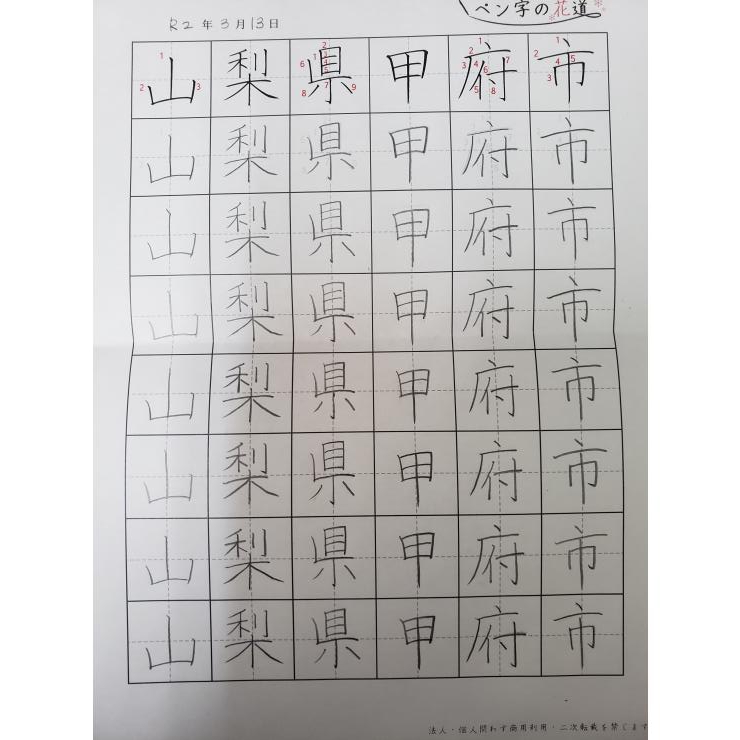 R2年3月13日
ペン字の花道
山梨県甲府市
山梨県甲府市
山梨県甲府市
山梨県甲府市
山梨県甲府市
山梨県甲府市
山梨県甲府市
山梨県甲府市
法人・個人問わず商用利用・二次転載を禁じます